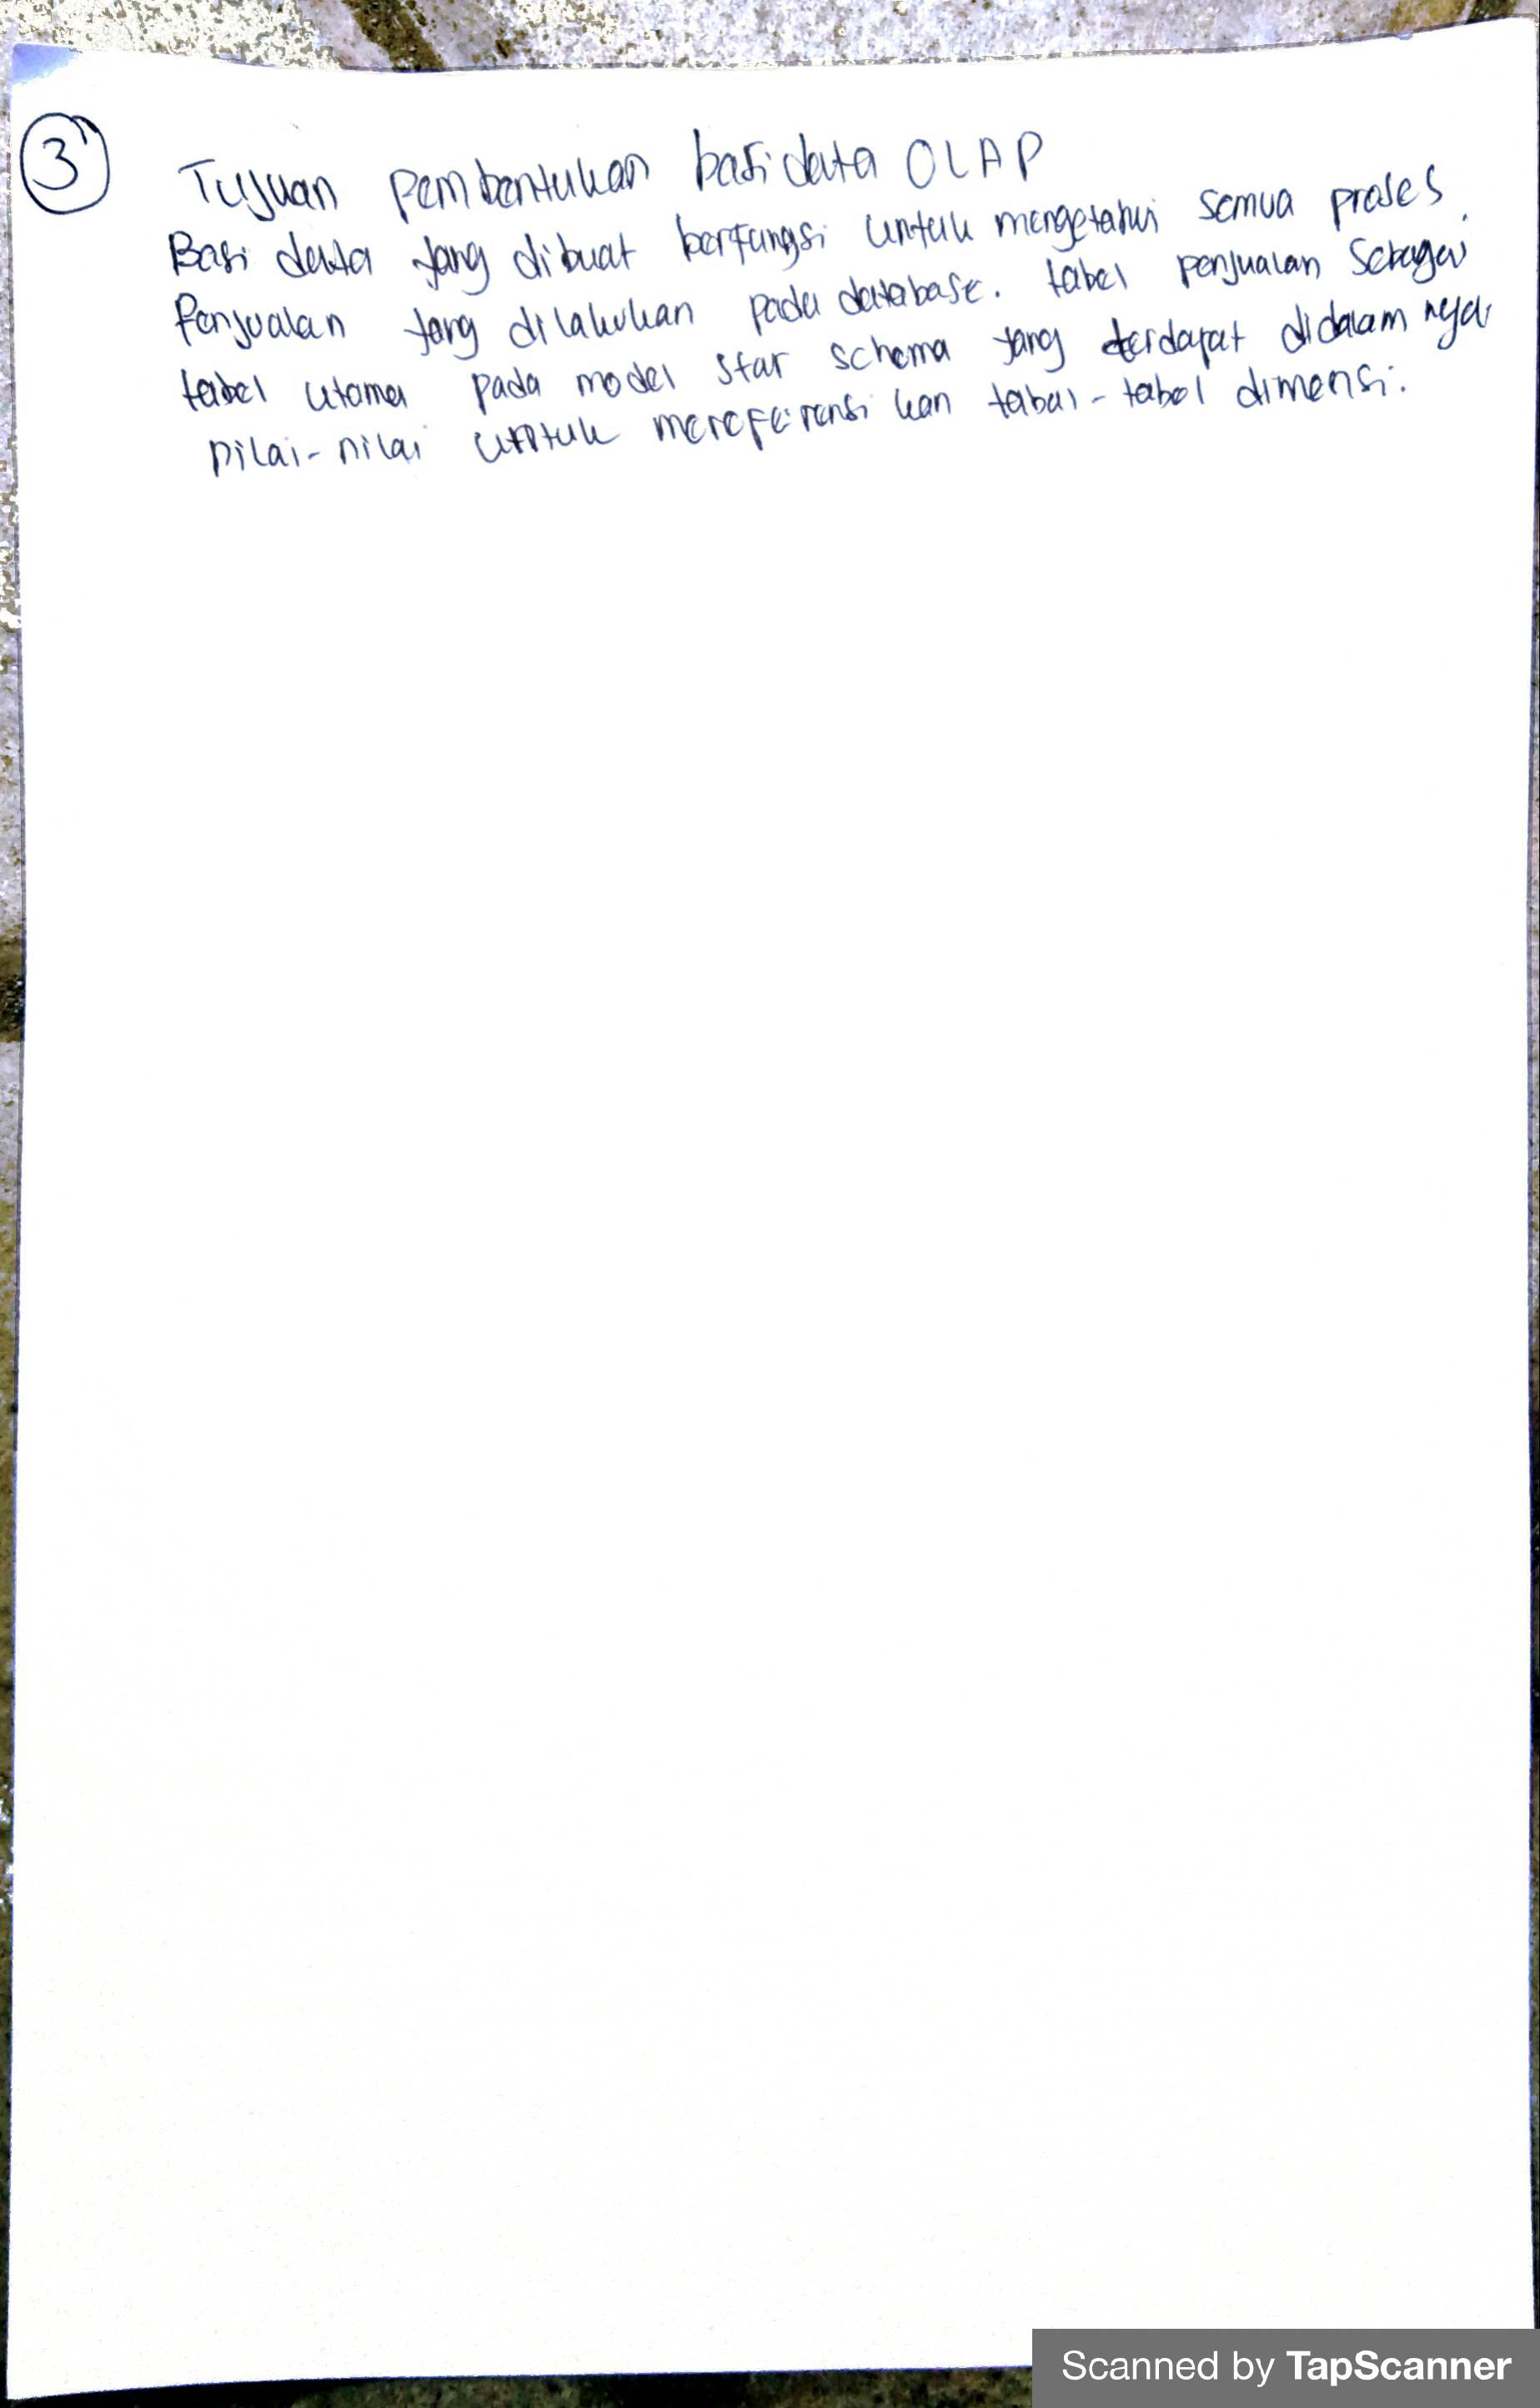 3
Tujuan pembentukan basi data OLAP
Basi data yang dibuat berfungsi untuk mengetahui semua proses
Penjualan yang dilakukan pada database. tabel penjualan Sebagai
tabel utama pada model star schema yang terdapat didalam nya
nilai-nilai untuk mereferensi kan tabel-tabel dimensi.
Scanned by TapScanner